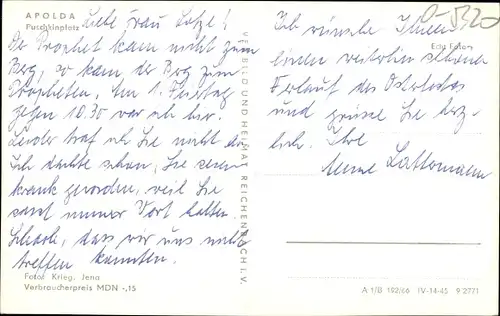 APOLDA
Puschkinplatz
Liebe Frau Lotze!
Der Prophet kam nicht zum
Berg, so kam der Berg zum
Propheten. Am 1. Feiertag
gegen 10.30 war ich hier.
Leider traf ich Sie nicht an.
Ich dachte schon, Sie seien
krank geworden, weil Sie
sonst immer Wort halten.
Schade, daß wir uns nicht
treffen konnten.
Foto: Krieg, Jena
Verbraucherpreis MDN -,15
VEB BILD UND HEIMAT REICHENBACH I. V.
Ich wünsche Ihnen
einen weiterhin schönen
Verlauf des Osterfestes
und grüße Sie herz-
lich. Ihre
Lattermann
A 1/B 192/66 IV-14-45 9 2771